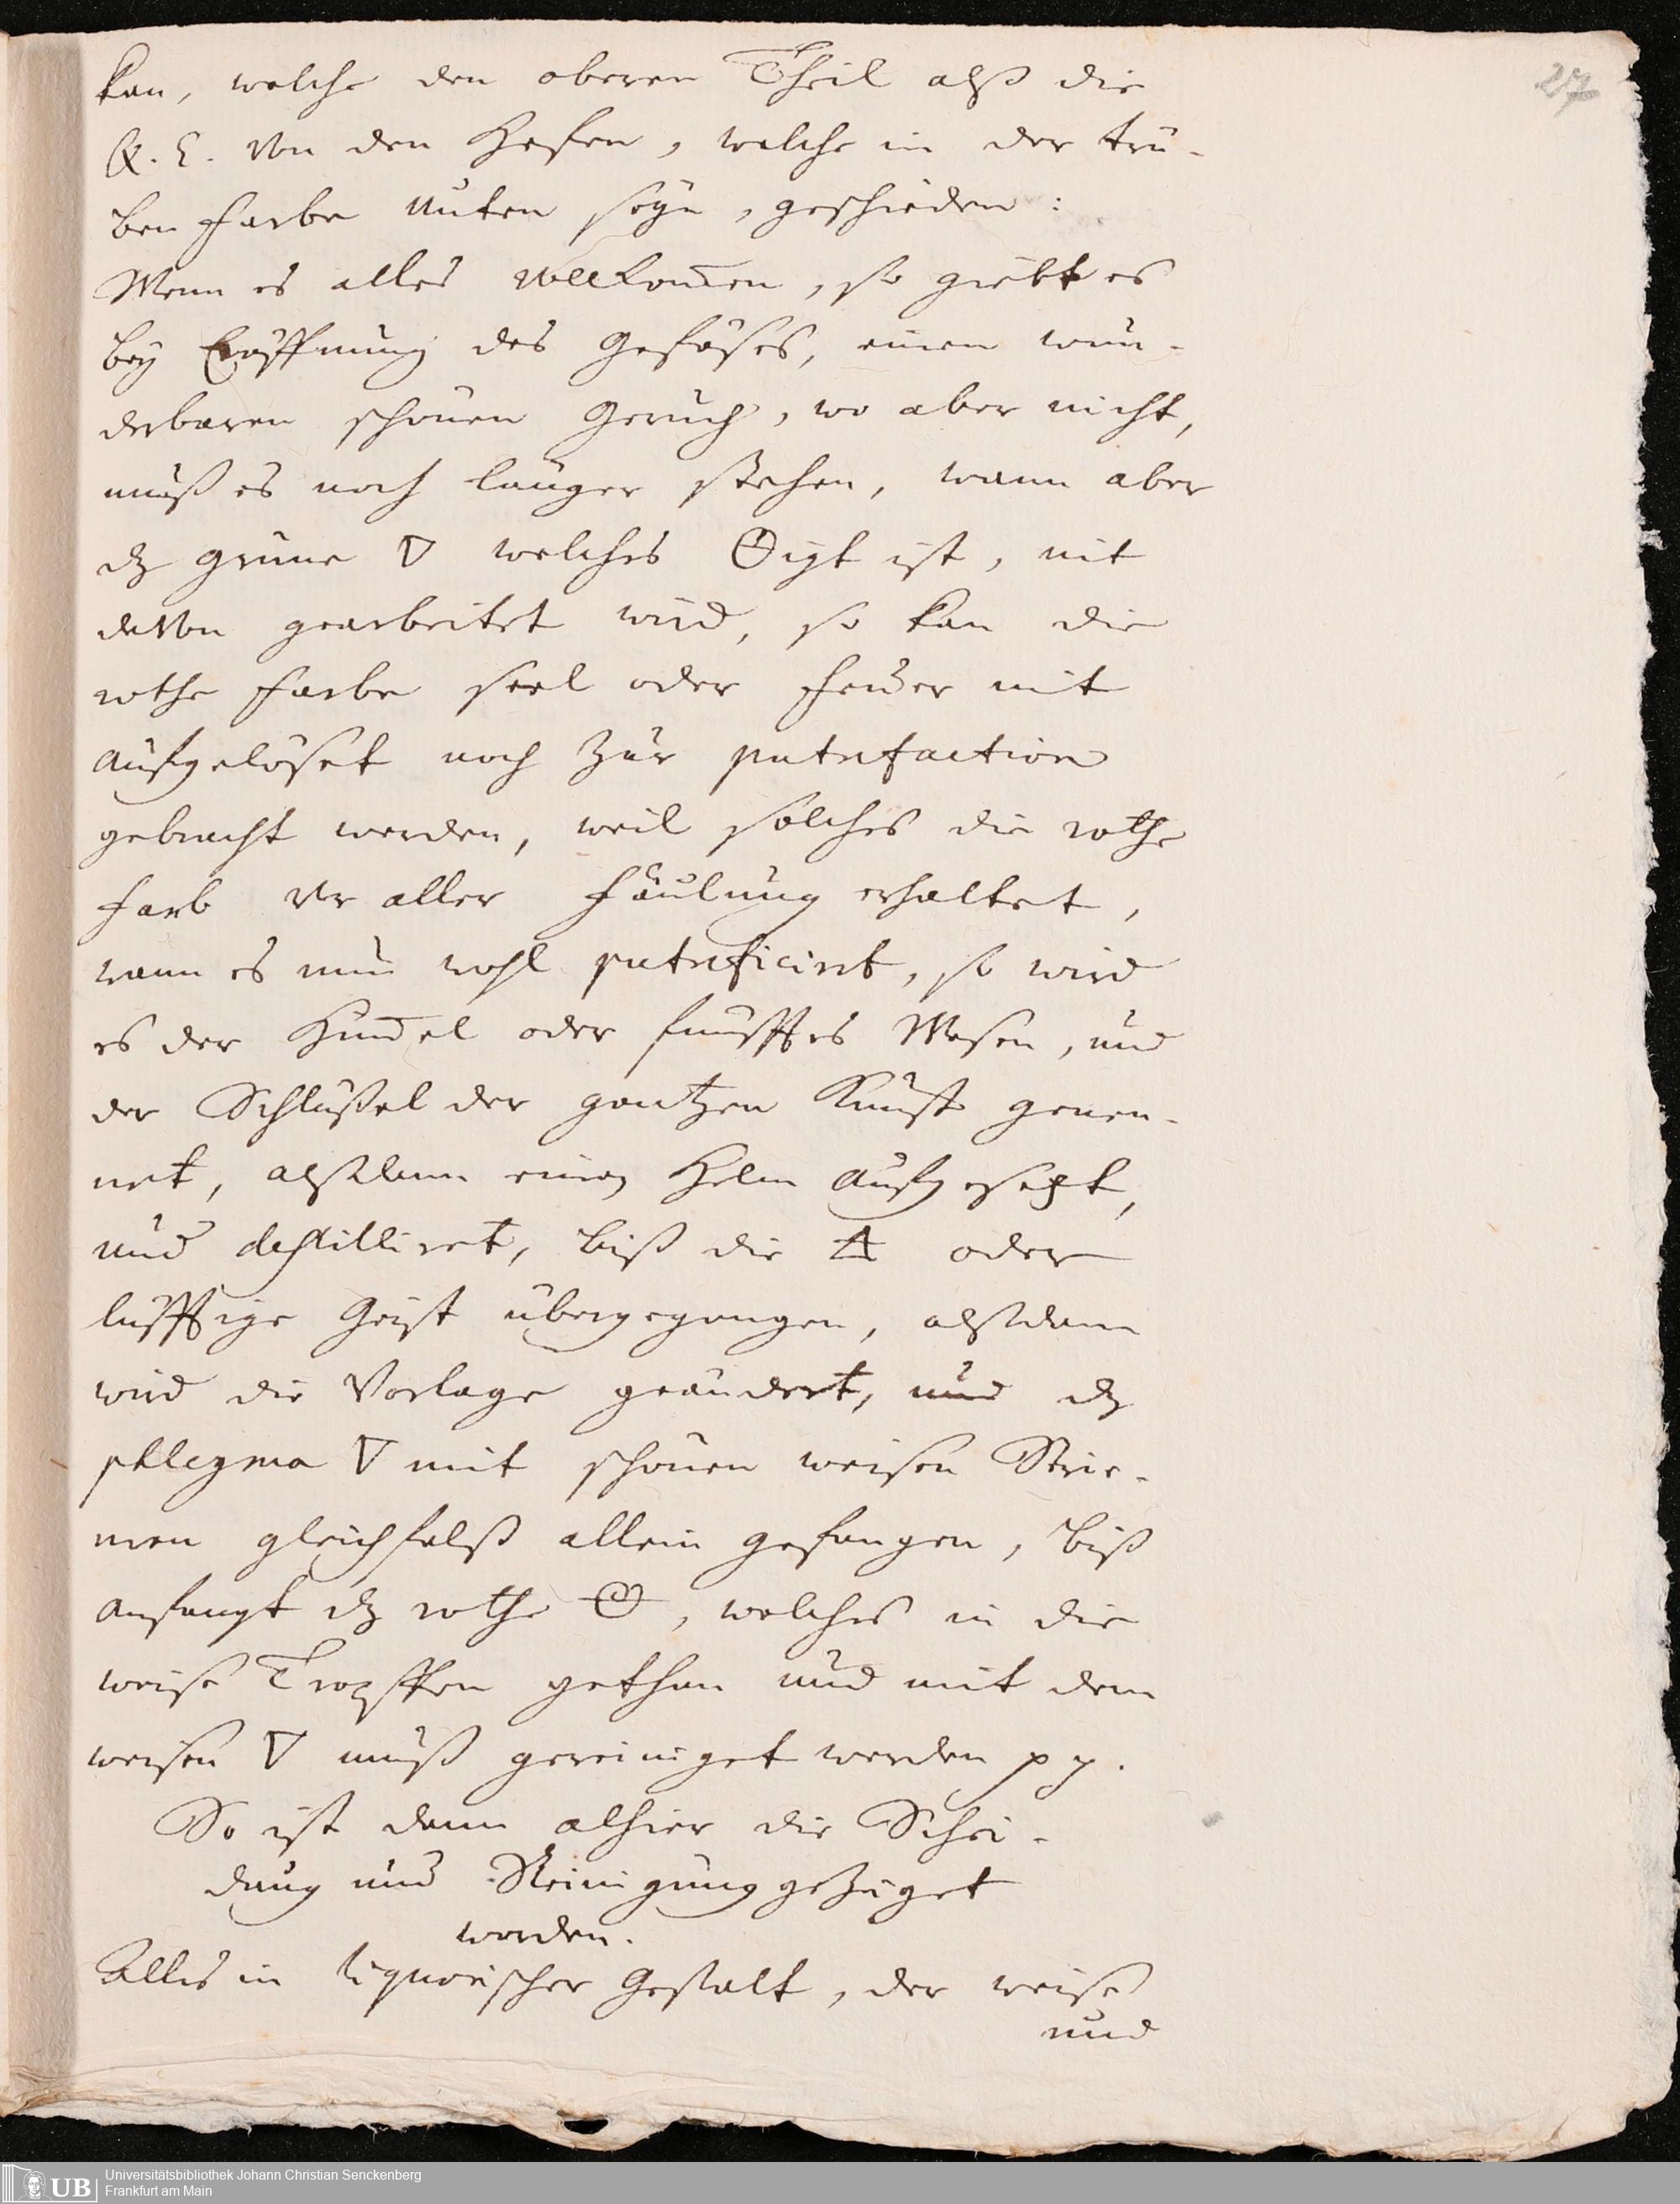 27
kan, welche den oberen Theil alß die
Q. E. von den Hefen, welche in der trü-
ben Farbe unten seyn, geschieden:
Wenn es alles vollkom̅en, so giebt es
bey Eröffnung des Gefäses, einen wun-
derbaren schönen Geruch, wo aber nicht,
muß es noch länger stehen, wann aber
dz grüne 🜄 welches Gift ist, nit
davon gearbeitet wird, so kan die
rothe Farbe seel oder Feuer nit
aufgelöset noch zur putrefaction
gebracht werden, weil solches die rothe
Farb vor aller Fäulung erhaltet,
wann es nun wohl putreficirt, so wird
es der Him̅el oder fünfftes Wesen, und
der Schlüßel der gantzen Kunst genen-
net, alßdann einen Helm aufgesetzt,
und destilliret, biß die 🜁 oder
lufftige Geist übergegangen, alßdann
wird die Vorlage geändert, und dz
phlegma 🜄 mit schönen weisen Strie-
men gleichfalß allein gefangen, biß
anfangt dz rothe 🜔, welches in die
weise Tropffen gethan und mit dem
weisen 🜄 muß gereiniget werden pp.
So ist dann alhier die Schei-
dung und Reinigung gezeiget
worden.
Alles in liquorischer Gestalt, der weise
und
UB
Universitätsbibliothek Johann Christian Senckenberg
Frankfurt am Main